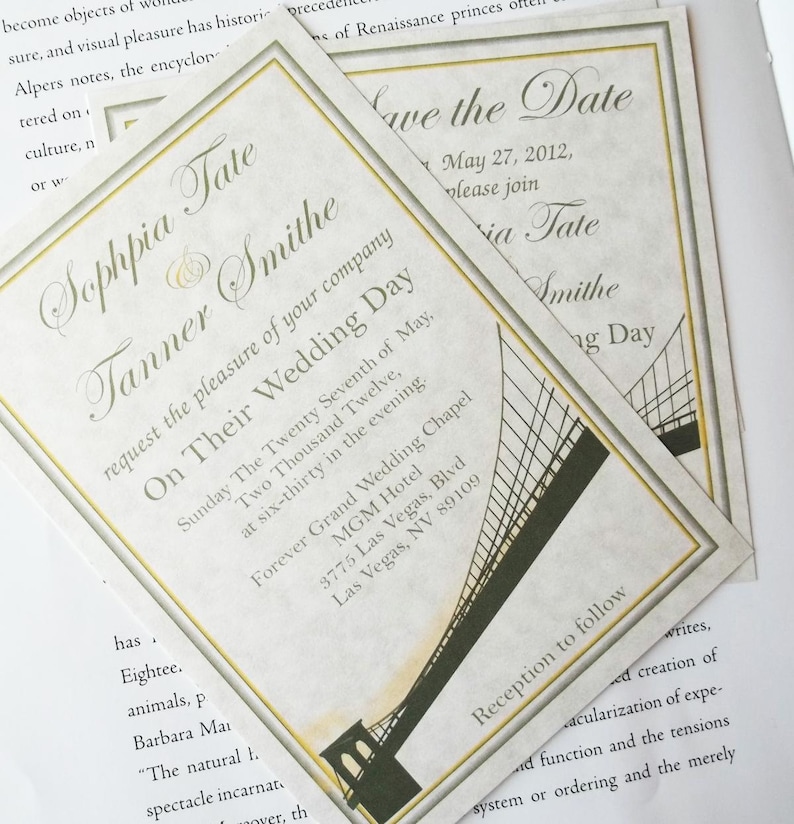 become objects of
sure, and visual pleasure has historic precedence
Alpers notes, the encyclop ns of Renaissance princes often
tered on
culture, n
or w
Sophpia Tate
&
Tanner Smithe
request the pleasure of your company
On Their Wedding Day
Sunday The Twenty Seventh of May,
Two Thousand Twelve,
at six-thirty in the evening.
Forever Grand Wedding Chapel
MGM Hotel
3775 Las Vegas, Blvd
Las Vegas, NV 89109
Reception to follow
Save the Date
May 27, 2012,
please join
ia Tate
Smithe
ng Day
has
Eighteen
animals, p
Barbara Mar
"The natural h
spectacle incarnat
over, th
writes,
ed creation of
tacularization of expe-
nd function and the tensions
system or ordering and the merely